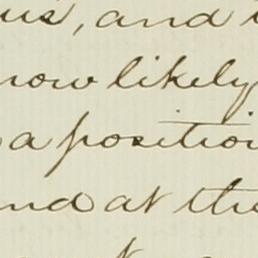 us, and
now likely
a position
and at the